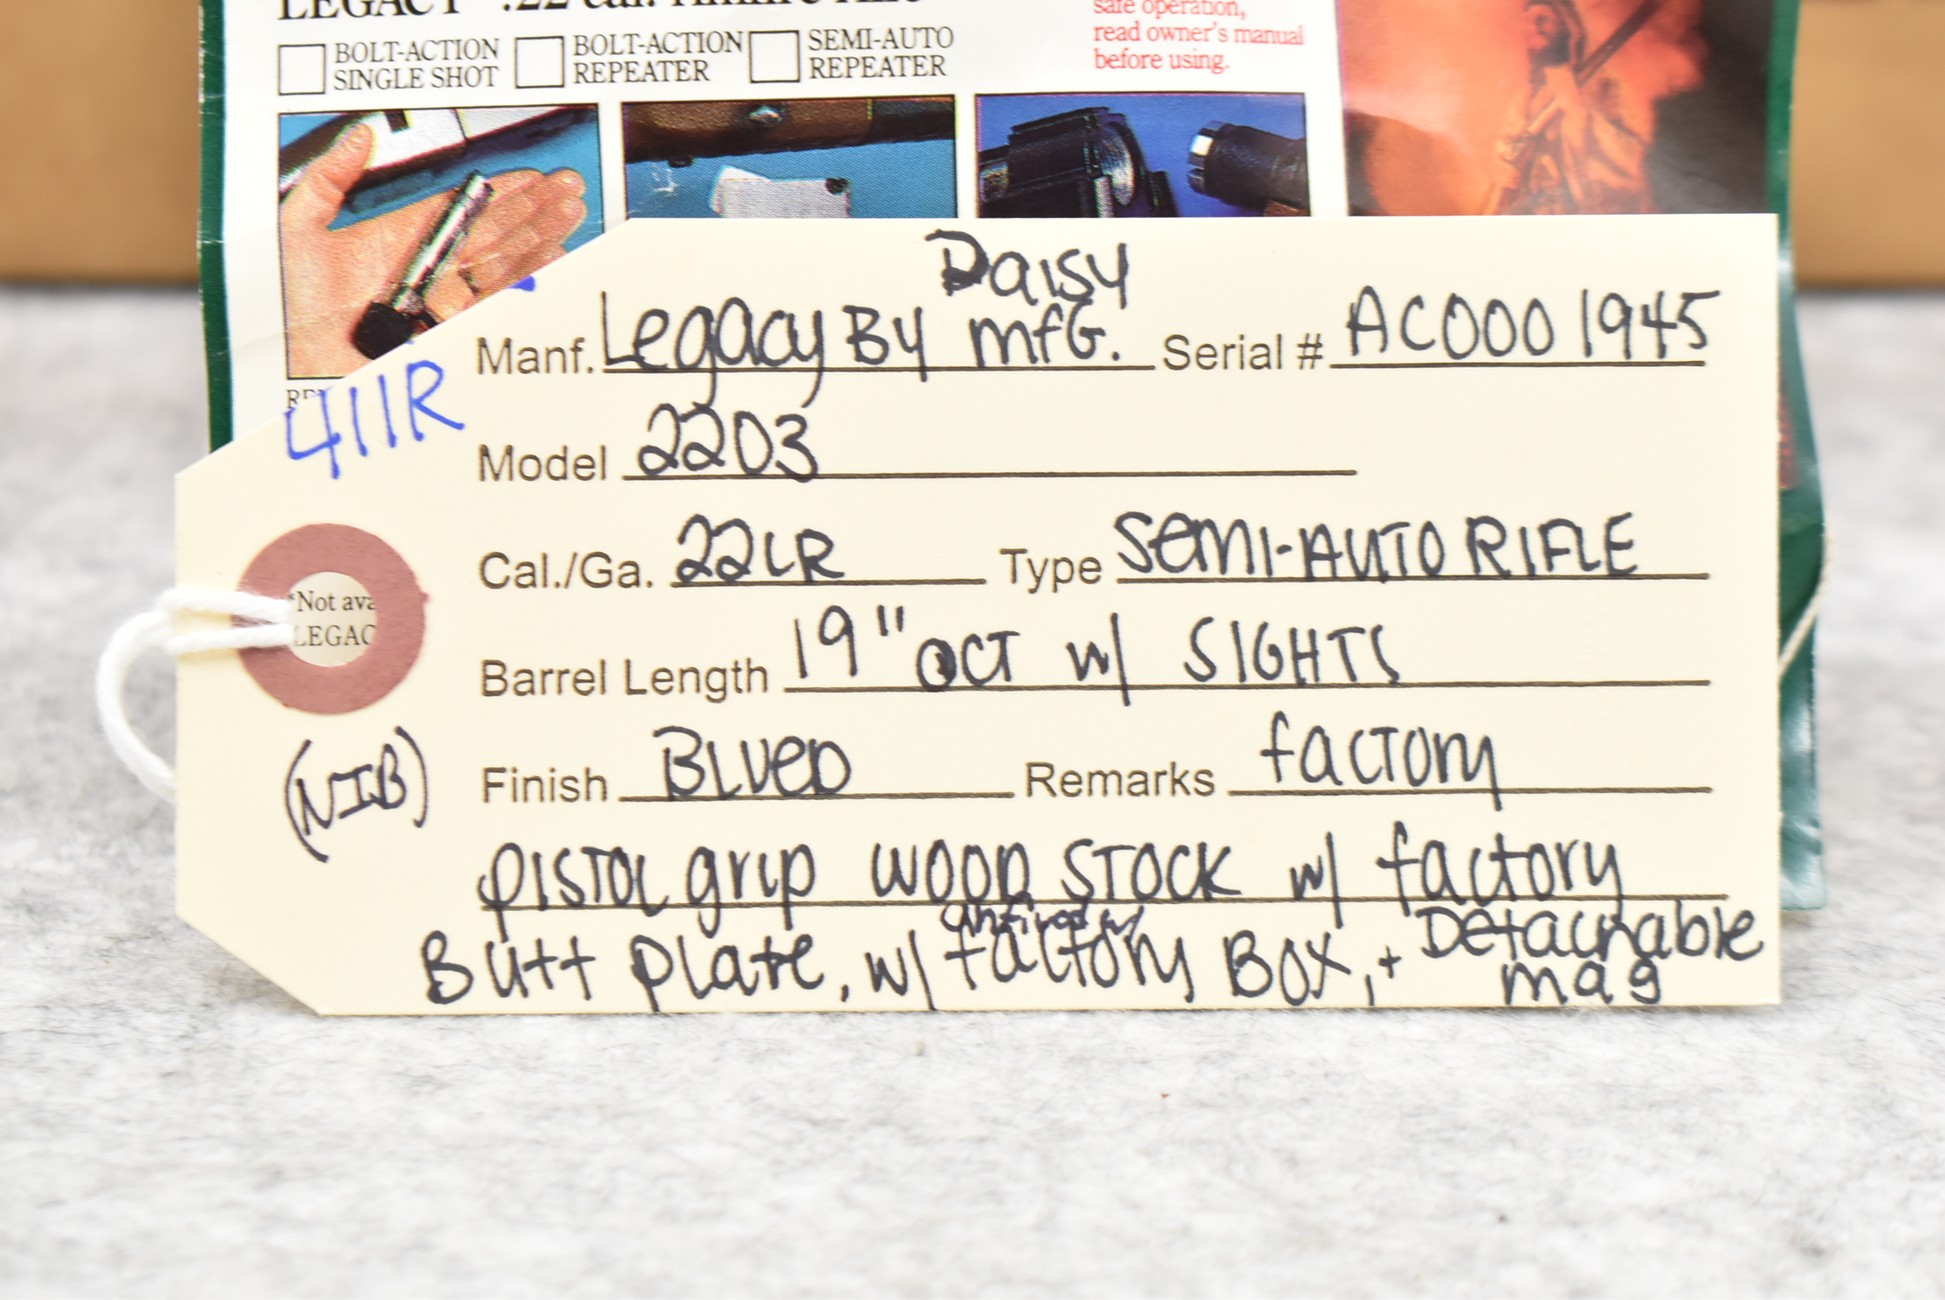 LEGACY .22 cal. Rimfire Rifle
BOLT-ACTION SINGLE SHOT
BOLT-ACTION REPEATER
SEMI-AUTO REPEATER
safe operation,
read owner's manual
before using.
411R
Daisy
Manf. Legacy By mfG. Serial # AC0001945
Model 2203
Cal./Ga. 22LR Type SEMI-AUTO RIFLE
*Not ava
LEGAC
Barrel Length 19" OCT w/ SIGHTS
(NIB)
Finish BLUED Remarks factory
PISTOL grip WOOD STOCK w/ factory
unfired w/
Butt plate, w/ factory BOX, + Detachable
mag